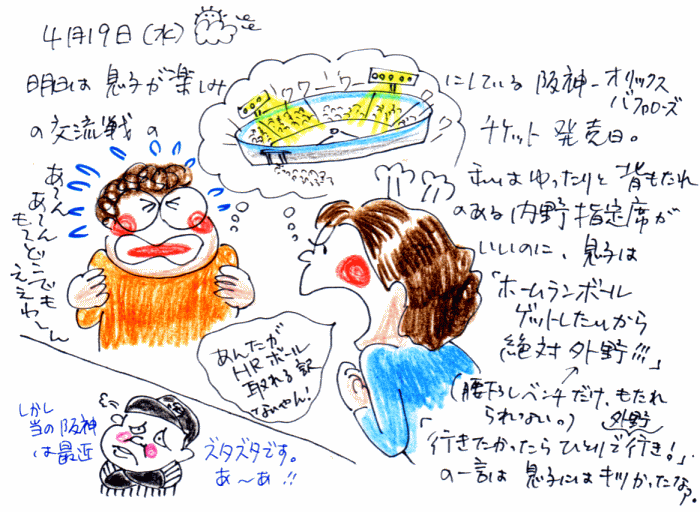 4月19日(水)
明日は息子が楽しみ
にしている阪神-オリックス
バファローズ
の交流戦の
チケット発売日。
ワワーワー
私はゆったりと背もたれ
のある内野指定席が
いいのに、息子は
「ホームランボール
ゲットしたいから
絶対外野!!!」
(腰下ろしベンチだけ、もたれ
られない。)
外野
「行きたかったらひとりで行き!」
の一言は息子にはキツかったなァ。
あ〜ん
あ〜ん
もーどーでも
ええわ〜ん
あんたが
HRボール
取れる訳
ないやん!
しかし
当の阪神
は最近
ズタズタです。
あ〜あ!!